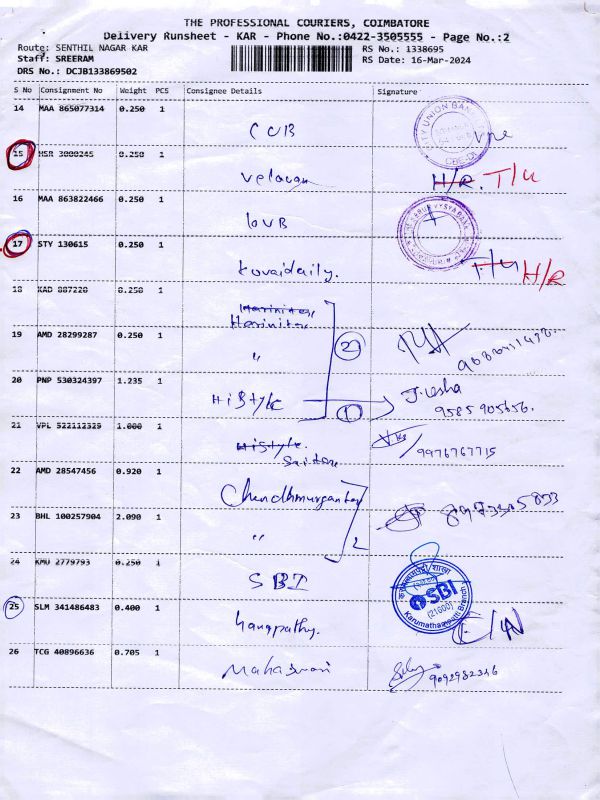 THE PROFESSIONAL COURIERS, COIMBATORE
Delivery Runsheet - KAR - Phone No.:0422-3505555 - Page No.:2
Route: SENTHIL NAGAR KAR
RS No.: 1338695
Staff: SREERAM
RS Date: 16-Mar-2024
DRS No.: DCJB133869502
S No Consignment No Weight PCS Consignee Details Signature
14 MAA 865077314 0.250 1
CUB
CITY UNION BANK
15 MSR 3000245 0.250 1
Velavan H/R. T/U
16 MAA 863822466 0.250 1
KVB
17 STY 130615 0.250 1
Kovaidaily. H/R
18 KAD 887220 0.250 1
Harinitex
Harinitex
19 AMD 28299287 0.250 1
" 2
20 PNP 530324397 1.235 1
HiStyle 1 J.Usha
9585905656.
21 VPL 522112329 1.000 1
HiStyle. 9976767715
22 AMD 28547456 0.920 1
23 BHL 100257904 2.090 1
" 2
24 KMU 2779793 0.250 1
SBI
SBI
(21600)
Karumathampatti Branch
25 SLM 341486483 0.400 1
26 TCG 40896636 0.705 1
9092982346